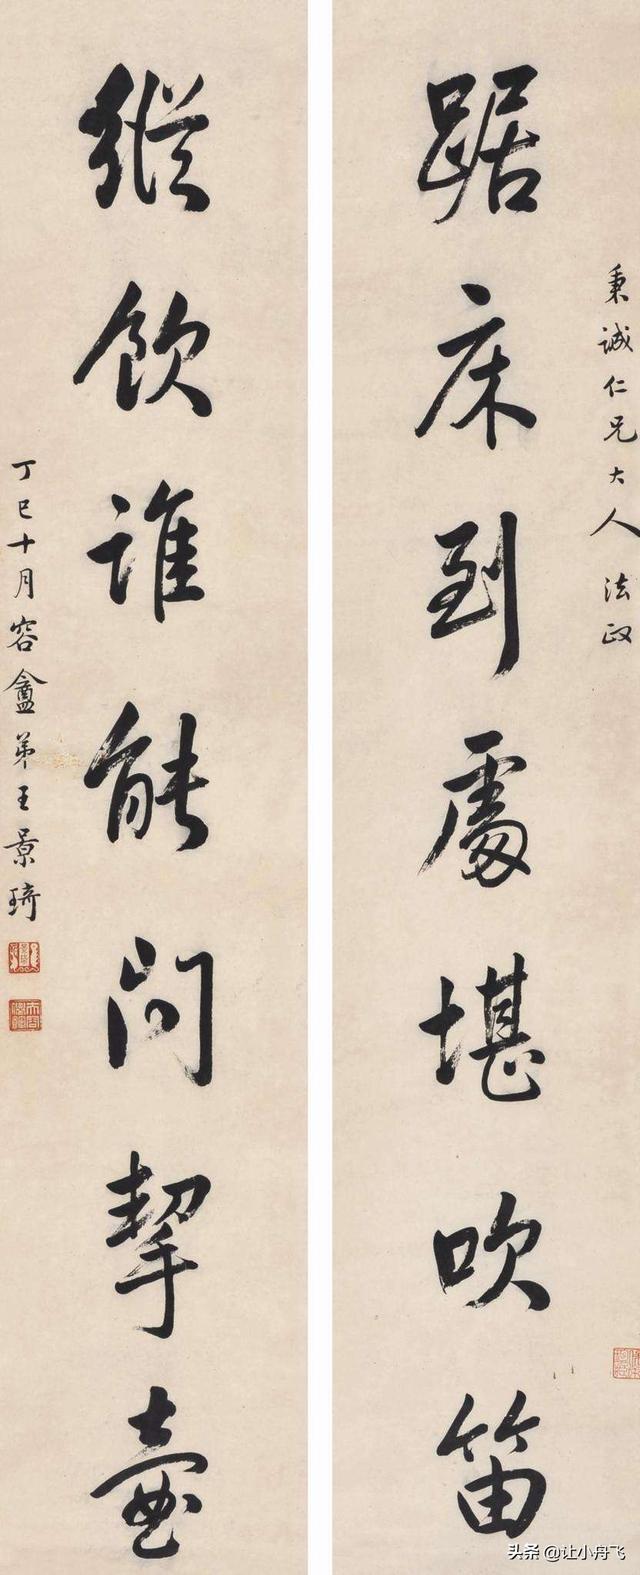 秉誠仁兄大人 法政
踞床到處堪吹笛
縱飲誰能問挈壺
丁巳十月容盦弟王景琦
头条 @让小舟飞